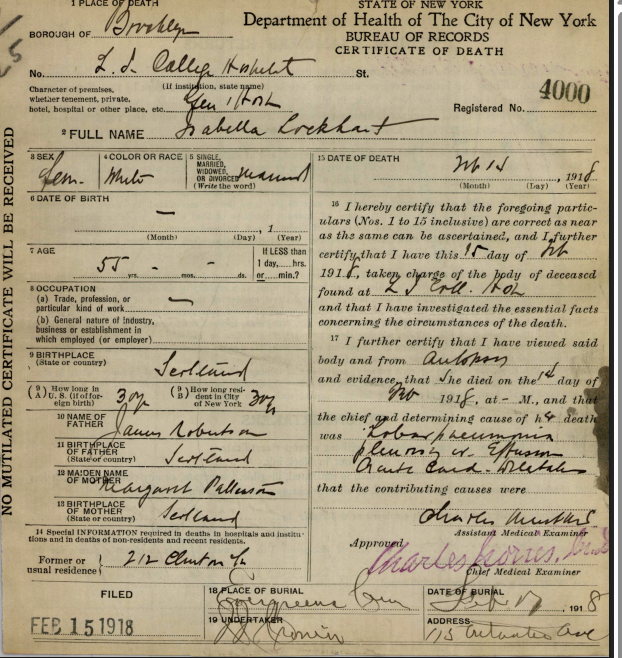 1 PLACE OF DEATH
STATE OF NEW YORK
Department of Health of The City of New York
BUREAU OF RECORDS
CERTIFICATE OF DEATH
BOROUGH OF Brooklyn
No. L. I. College Hospital St.
(If institution, state name)
Character of premises,
whether tenement, private,
hotel, hospital or other place, etc. Gen'l Hosp
Registered No. 4000
2 FULL NAME Isabella Lockhart
3 SEX Fem. 4 COLOR OR RACE White 5 SINGLE, MARRIED, WIDOWED, OR DIVORCED (Write the word) Married
6 DATE OF BIRTH
—
, 1
(Month) (Day) (Year)
7 AGE
55 yrs. - mos. - ds.
If LESS than
1 day,....hrs.
or....min.?
8 OCCUPATION
(a) Trade, profession, or
particular kind of work —
(b) General nature of industry,
business or establishment in
which employed (or employer)
9 BIRTHPLACE
(State or country) Scotland
(9 A) How long in U. S. (if of foreign birth) 30y (9 B) How long resident in City of New York 30y
10 NAME OF
FATHER James Robertson
11 BIRTHPLACE
OF FATHER
(State or country) Scotland
12 MAIDEN NAME
OF MOTHER Margaret Patterson
13 BIRTHPLACE
OF MOTHER
(State or country) Scotland
14 Special INFORMATION required in deaths in hospitals and institutions and in deaths of non-residents and recent residents.
Former or
usual residence 212 Clinton St
15 DATE OF DEATH
Feb 14, 1918
(Month) (Day) (Year)
16 I hereby certify that the foregoing partic-
ulars (Nos. 1 to 15 inclusive) are correct as near
as the same can be ascertained, and I further
certify that I have this 15 day of Feb
1918, taken charge of the body of deceased
found at L I Coll. Hosp
and that I have investigated the essential facts
concerning the circumstances of the death.
17 I further certify that I have viewed said
body and from autopsy
and evidence, that she died on the 14 day of
Feb 1918, at - M., and that
the chief and determining cause of her death
was Lobar pneumonia
pleurisy w. Effusion
Acute Card. Dilatation
that the contributing causes were
Charles
Assistant Medical Examiner
Approved Charles Norris, M.D.
Chief Medical Examiner
FILED
FEB 15 1918
18 PLACE OF BURIAL
Evergreens Cem
DATE OF BURIAL
Feb 17, 1918
19 UNDERTAKER
J J Cronin
ADDRESS
115 Atlantic Ave
NO MUTILATED CERTIFICATE WILL BE RECEIVED